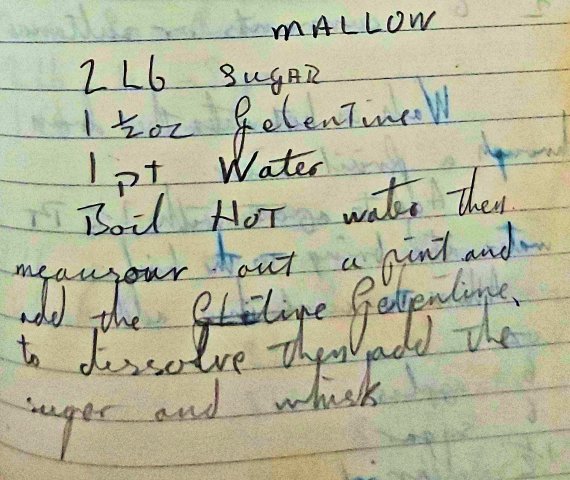 MALLOW
2 Lb SUGAR
1 ½oz Gelentine
1 pt Water
Boil HOT water then
meausour out a pint and
add the Gelentine
to dissolve then add the
suger and whisk